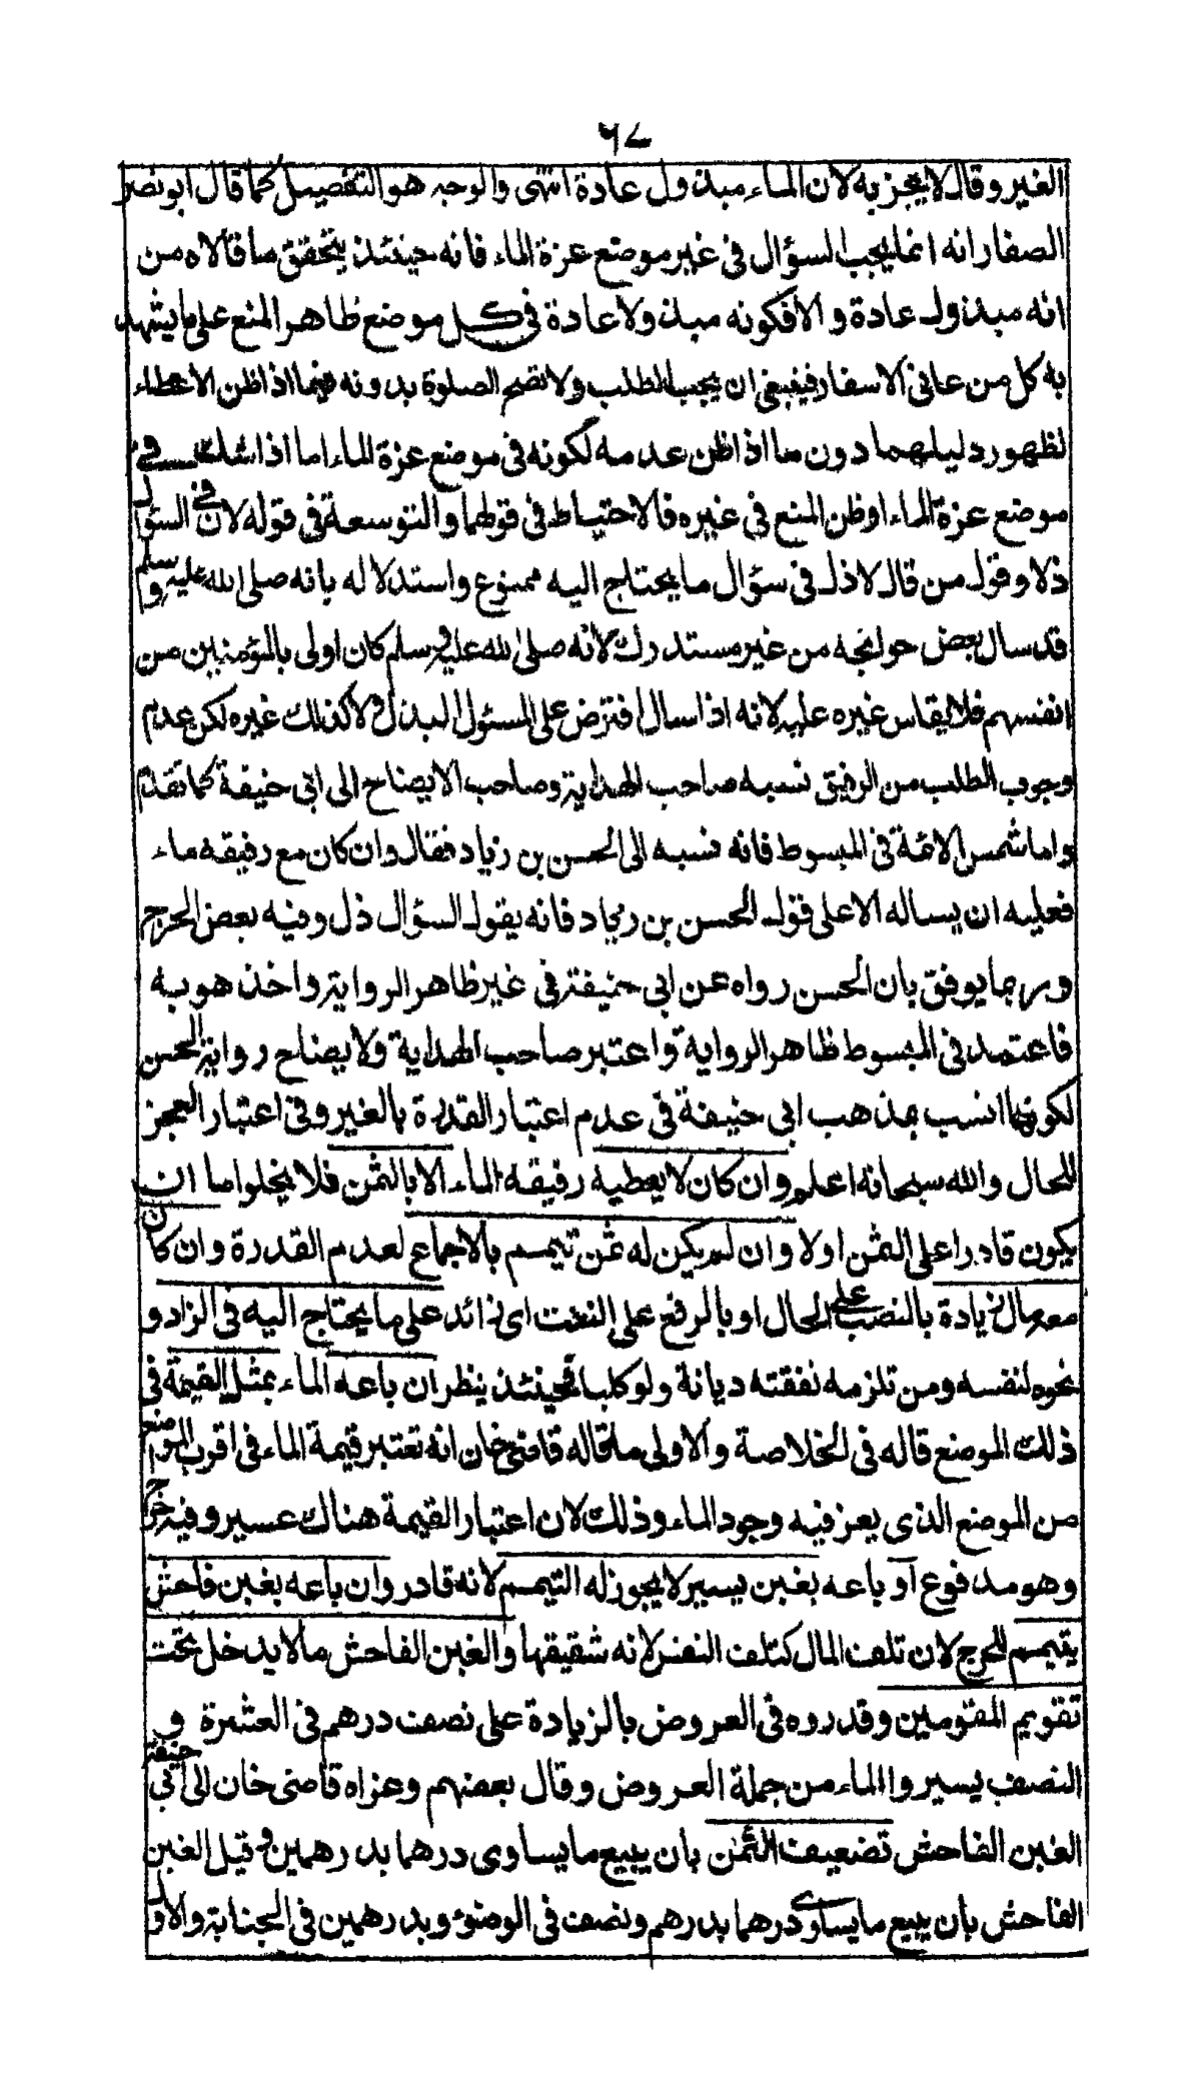 ٦٧
الغير وقالا لا يجزيه لان الماء مبذول عادة انتهى والوجه هو التفصيل كما قال ابو نصر
الصفار انه انما يجب السؤال فى غير موضع عزة الماء فانه حينئذ يتحقق ما قالاه من
انه مبذول عادة والا فكونه مبذولا عادة فى كل موضع ظاهر المنع على ما يشهد
به كل من عانى الاسفار فينبغى ان يجب الطلب ولا تصح الصلوة بدونه فيما اذا ظن الاعطاء
لظهور دليلهما دون ما اذا ظن عدمه لكونه فى موضع عزة الماء اما اذا شك فى
موضع عزة الماء او ظن المنع فى غيره فالاحتياط فى قولهما والتوسعة فى قوله لان فى السؤال
ذلا وقول من قال لا ذل فى سؤال ما يحتاج اليه ممنوع واستدلاله بانه صلى الله عليه وسلم
قد سال بعض حوائجه من غير مستدرك لانه صلى الله عليه وسلم كان اولى بالمؤمنين من
انفسهم فلا يقاس غيره عليه لانه اذا سال افترض على المسئول البذل ولا كذلك غيره لكن عدم
وجوب الطلب من الرفيق نسبه صاحب الهداية وصاحب الايضاح الى ابى حنيفة كما تقدم
واما شمس الائمة فى المبسوط فانه نسبه الى الحسن بن زياد فقال وان كان مع رفيقه ماء
فعليه ان يساله الا على قول الحسن بن زياد فانه يقول السؤال ذل وفيه بعض الحرج
وربما يوفق بان الحسن رواه عن ابى حنيفة فى غير ظاهر الرواية واخذ هو به
فاعتمد فى المبسوط ظاهر الرواية واعتبر صاحب الهداية ولايضاح رواية الحسن
لكونها انسب بمذهب ابى حنيفة فى عدم اعتبار القدرة بالغير وفى اعتبار العجز
للحال والله سبحانه اعلم وان كان لا يعطيه رفيقه الماء الا بالثمن فلا يخلو اما ان
يكون قادرا على الثمن او لا وان لم يكن له ثمن تيمم بالاجماع لعدم القدرة وان كان
معه مال زيادة بالنصب على الحال او بالرفع على النعت اى زائد على ما يحتاج اليه فى الزاد و
نحوه لنفسه ومن تلزمه نفقته ديانة ولو كلبا فحينئذ ينظر ان باعه الماء بمثل القيمة فى
ذلك الموضع قاله فى الخلاصة والاولى ما قاله قاضى خان انه تعتبر قيمة الماء فى اقرب المواضع
من الموضع الذى يعز فيه وجود الماء وذلك لان اعتبار القيمة هناك عسير وفيه حرج
وهو مدفوع او باعه بغبن يسير لا يجوز له التيمم لانه قادر وان باعه بغبن فاحش
يتيمم للحرج لان تلف المال كتلف النفس لانه شقيقها والغبن الفاحش ما لا يدخل تحت
تقويم المقومين وقدروه فى العروض بالزيادة على نصف درهم فى العشرة و
النصف يسير والماء من جملة العروض وقال بعضهم وعزاه قاضى خان الى ابى حنيفة
الغبن الفاحش تضعيف الثمن بان يبيع ما يساوى درهما بدرهمين وقيل الغبن
الفاحش بان يبيع ما يساوى درهما بدرهم ونصف فى الوضوء وبدرهمين فى الجنابة والاول